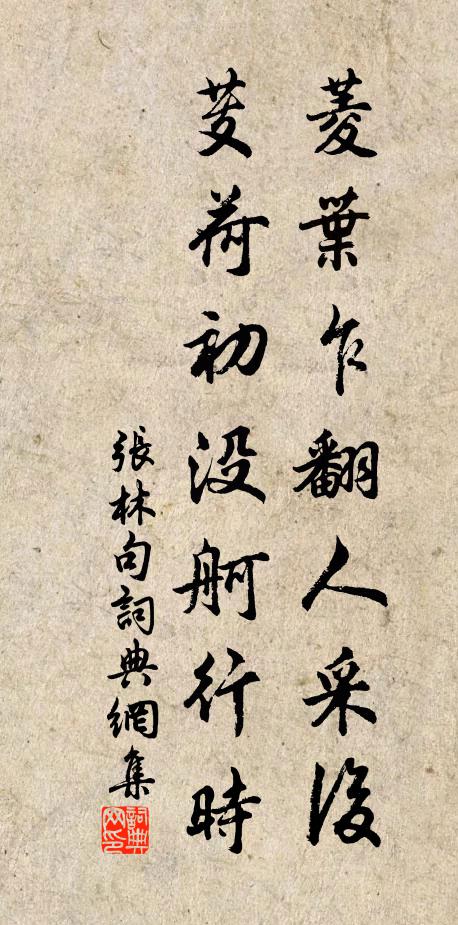 菱葉乍翻人采後
芰荷初没舸行時
張林句詞典網集
詞典网印